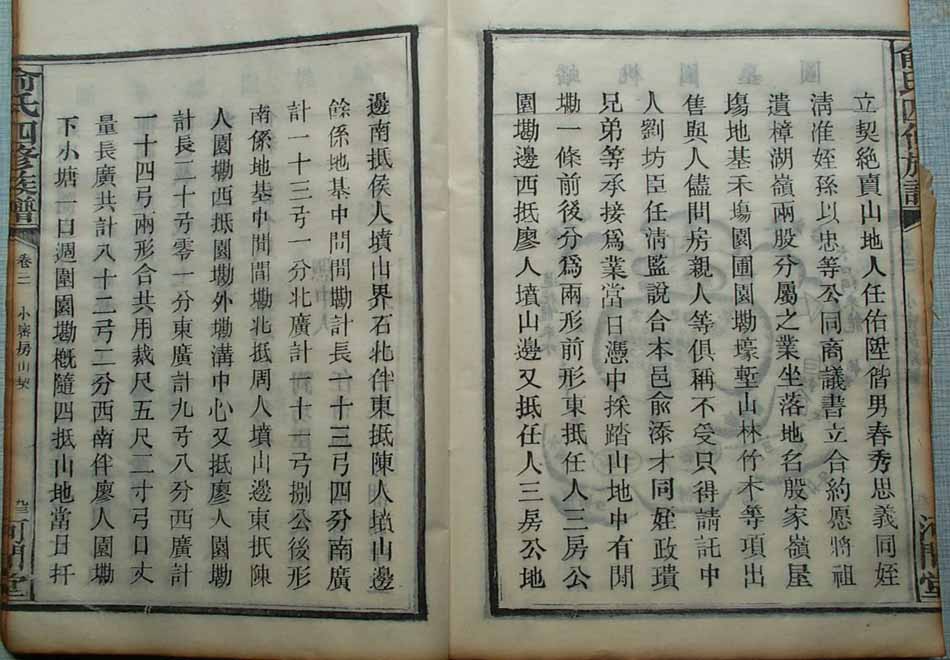 立契絶賣山地人任佑陞偕男春秀思義同姪
清淮姪孫以忠等公同商議書立合約愿將祖
遺樟湖嶺兩股分屬之業坐落地名殷家嶺屋
塲地基禾塲園圃園墈壕塹山林竹木等項出
售與人儘問房親人等俱稱不受只得請託中
人劉坊臣任淸監說合本邑兪添才同姪政璝
兄弟等承接爲業當日憑中採踏山地中有閒
墈一條前後分爲兩形前形東抵任人三房公
園墈邊西抵廖人墳山邊又抵任人三房公地
邊南抵侯人墳山界石北伴東抵陳人墳山邊
餘係地基中間間墈計長一十三弓四分南廣
計一十三弓一分北廣計一十一弓捌公後形
南係地基中間間墈北抵周人墳山邊東抵陳
人園墈西抵園墈外墈溝中心又抵廖人園墈
計長二十弓零一分東廣計九弓八分西廣計
一十四弓兩形合共用裁尺五尺二寸弓口丈
量長廣共計八十二弓二分西南伴廖人園墈
下小塘一口週圍園墈概隨四抵山地當日扦
俞氏四修族譜
卷二
小塘房山契
河間堂